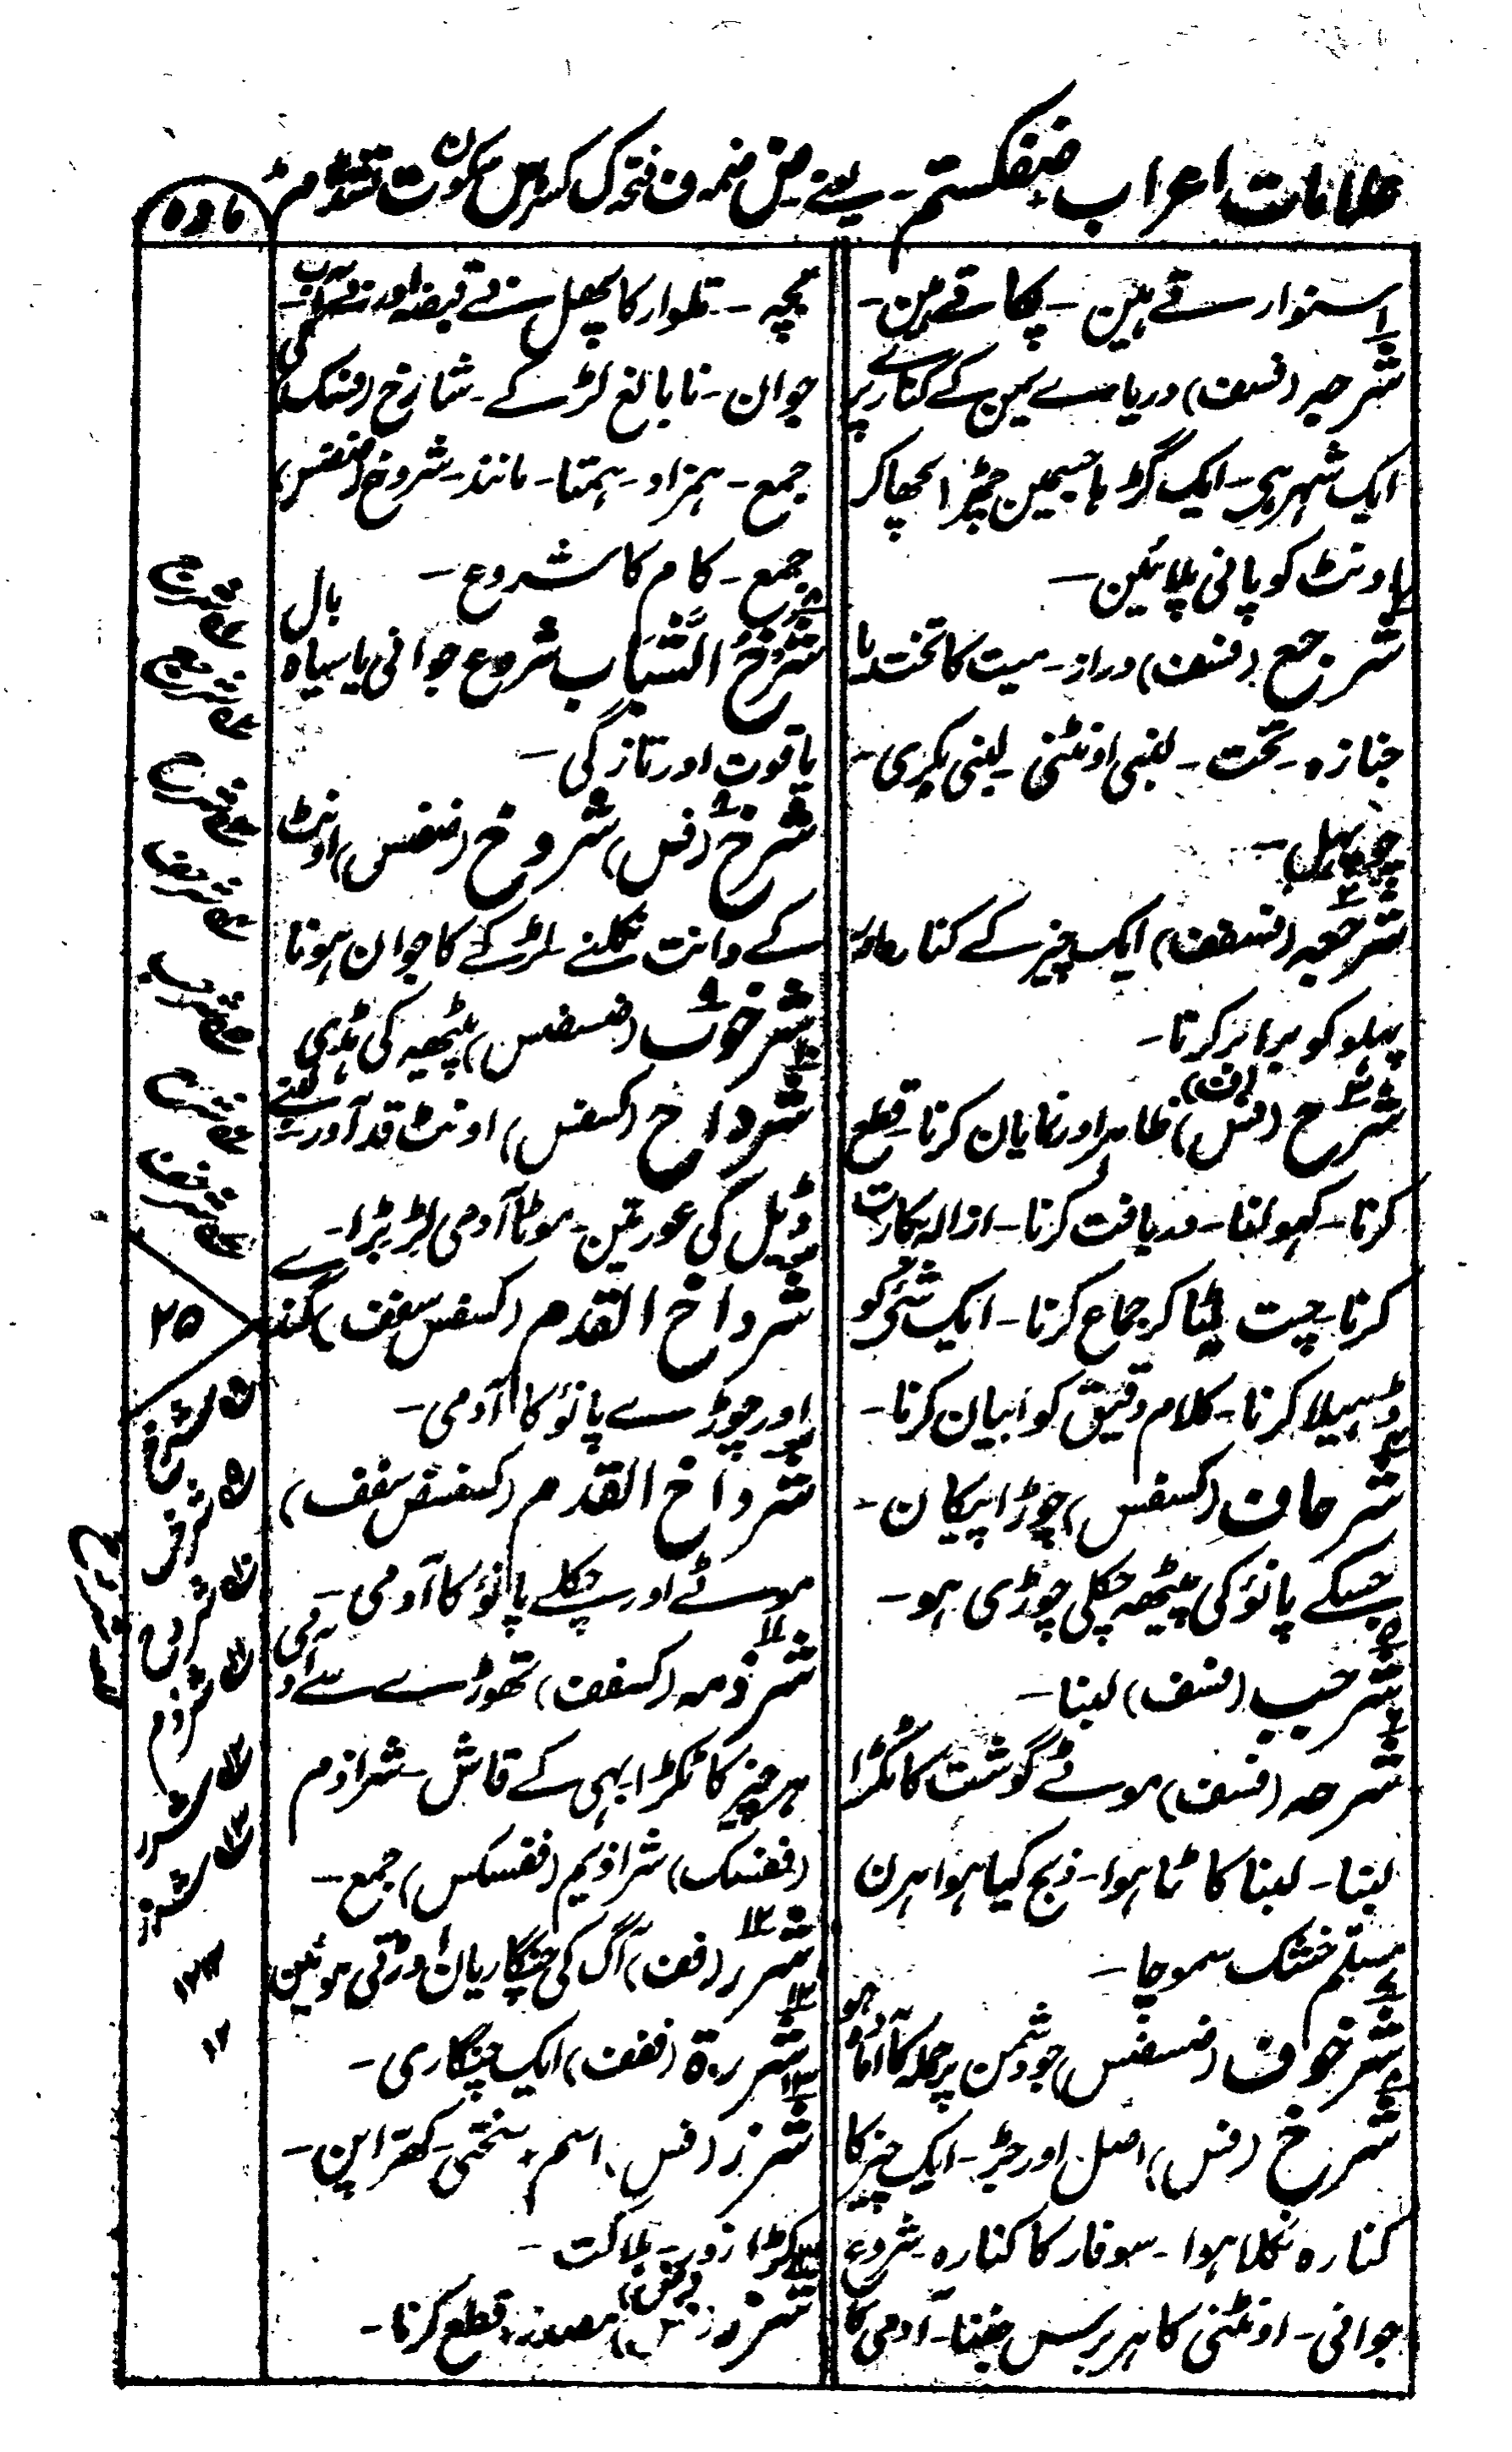 علامات اعراب ضفکستم۔ یعنے ض ضمہ ف فتحہ ک کسرہ س سکون ت تشدید م مد
مادہ
سنوارتے ہین۔ پکاتے ہین۔
شرجہ (فسف) دریاے یمن کے کنارے پر
ایک شہر ہی۔ ایک گڑہا جسمین چمڑا بچھا کر
اونٹ کو پانی پلائین۔
شرجع (فسف) دراز۔ میت کا تختہ یا
جنازہ۔ تخت۔ لنبی اونٹنی۔ لنبی لکڑی۔
چوپہل۔
شرجعہ (فسففف) ایک چیز کے کنارہ اور
پہلو کو برابر کرنا۔
شرح (فس) (ف) ظاہر اور نمایان کرنا۔ قطع
کرنا۔ کہولنا۔ دریافت کرنا۔ ازالہ بکارت
کرنا۔ چت لیٹا کر جماع کرنا۔ ایک شئ کو
ڈہیلا کرنا۔ کلام دقیق کو بیان کرنا۔
شرحاف (کسفس) چوڑا پیکان۔
جسکے پانؤ کی پیٹھہ چکلی چوڑی ہو۔
شرحب (فسف) لنبا۔
شرحہ (فسف) موٹے گوشت کا ٹکڑا
لنبا۔ لنبا کاٹا ہوا۔ ذبح کیا ہوا ہرن
مسلم خشک سموچا۔
شرخوف (ضسضس) جو دشمن پر حملہ کا آمادہ ہو
شرخ (فس) اصل اور جڑ۔ ایک چیز کا
کنارہ نکلا ہوا۔ سوفار کا کنارہ۔ شروع
جوانی۔ اونٹنی کا ہر برس جننا۔ آدمی کا
بچہ۔ تلوار کا پھل بے قبضہ اور بے آب۔
جوان۔ نابالغ لڑکے۔ شارخ (فسک) کی
جمع۔ ہمزاد۔ ہمتا۔ مانند۔ شروخ (ضفس)
جمع۔ کام کا شروع۔
شرخ الشباب شروع جوانی یا سیاہ بال
یا قوت اور تازگی۔
شرخ (فس) شروخ (ضفس) اونٹ
کے دانت نکلنے۔ لڑکے کا جوان ہونا
شرخوب (ضسضس) پیٹھہ کی ہڈی
شرداح (کسفس) اونٹ قد آور۔ لنبے
ڈیل کی عورتین۔ موٹا آدمی لڑبڑا۔
شرداخ القدم (کسفس سففف) گندے
اور چوڑے پانؤ کا آدمی۔
شرداخ القدم (کسفس سففف)
موٹے اور چکلے پانؤ کا آدمی۔
شرذمہ (کسفف) تھوڑے سے آدمی
ہر چیز کا ٹکڑا۔ بہی کے قاش۔ شراذم
(ففسک) شراذیم (ففسکس) جمع۔
شرر (فف) آگ کی چنگاریان اوڑتی ہوئین
شررة (ففف) ایک چنگاری۔
شرز (فس) اسم، سختی۔ کھترا پن۔
کڑا زور۔ ہلاکت۔
شرز (فس) مصدر، قطع کرنا۔
۲۵